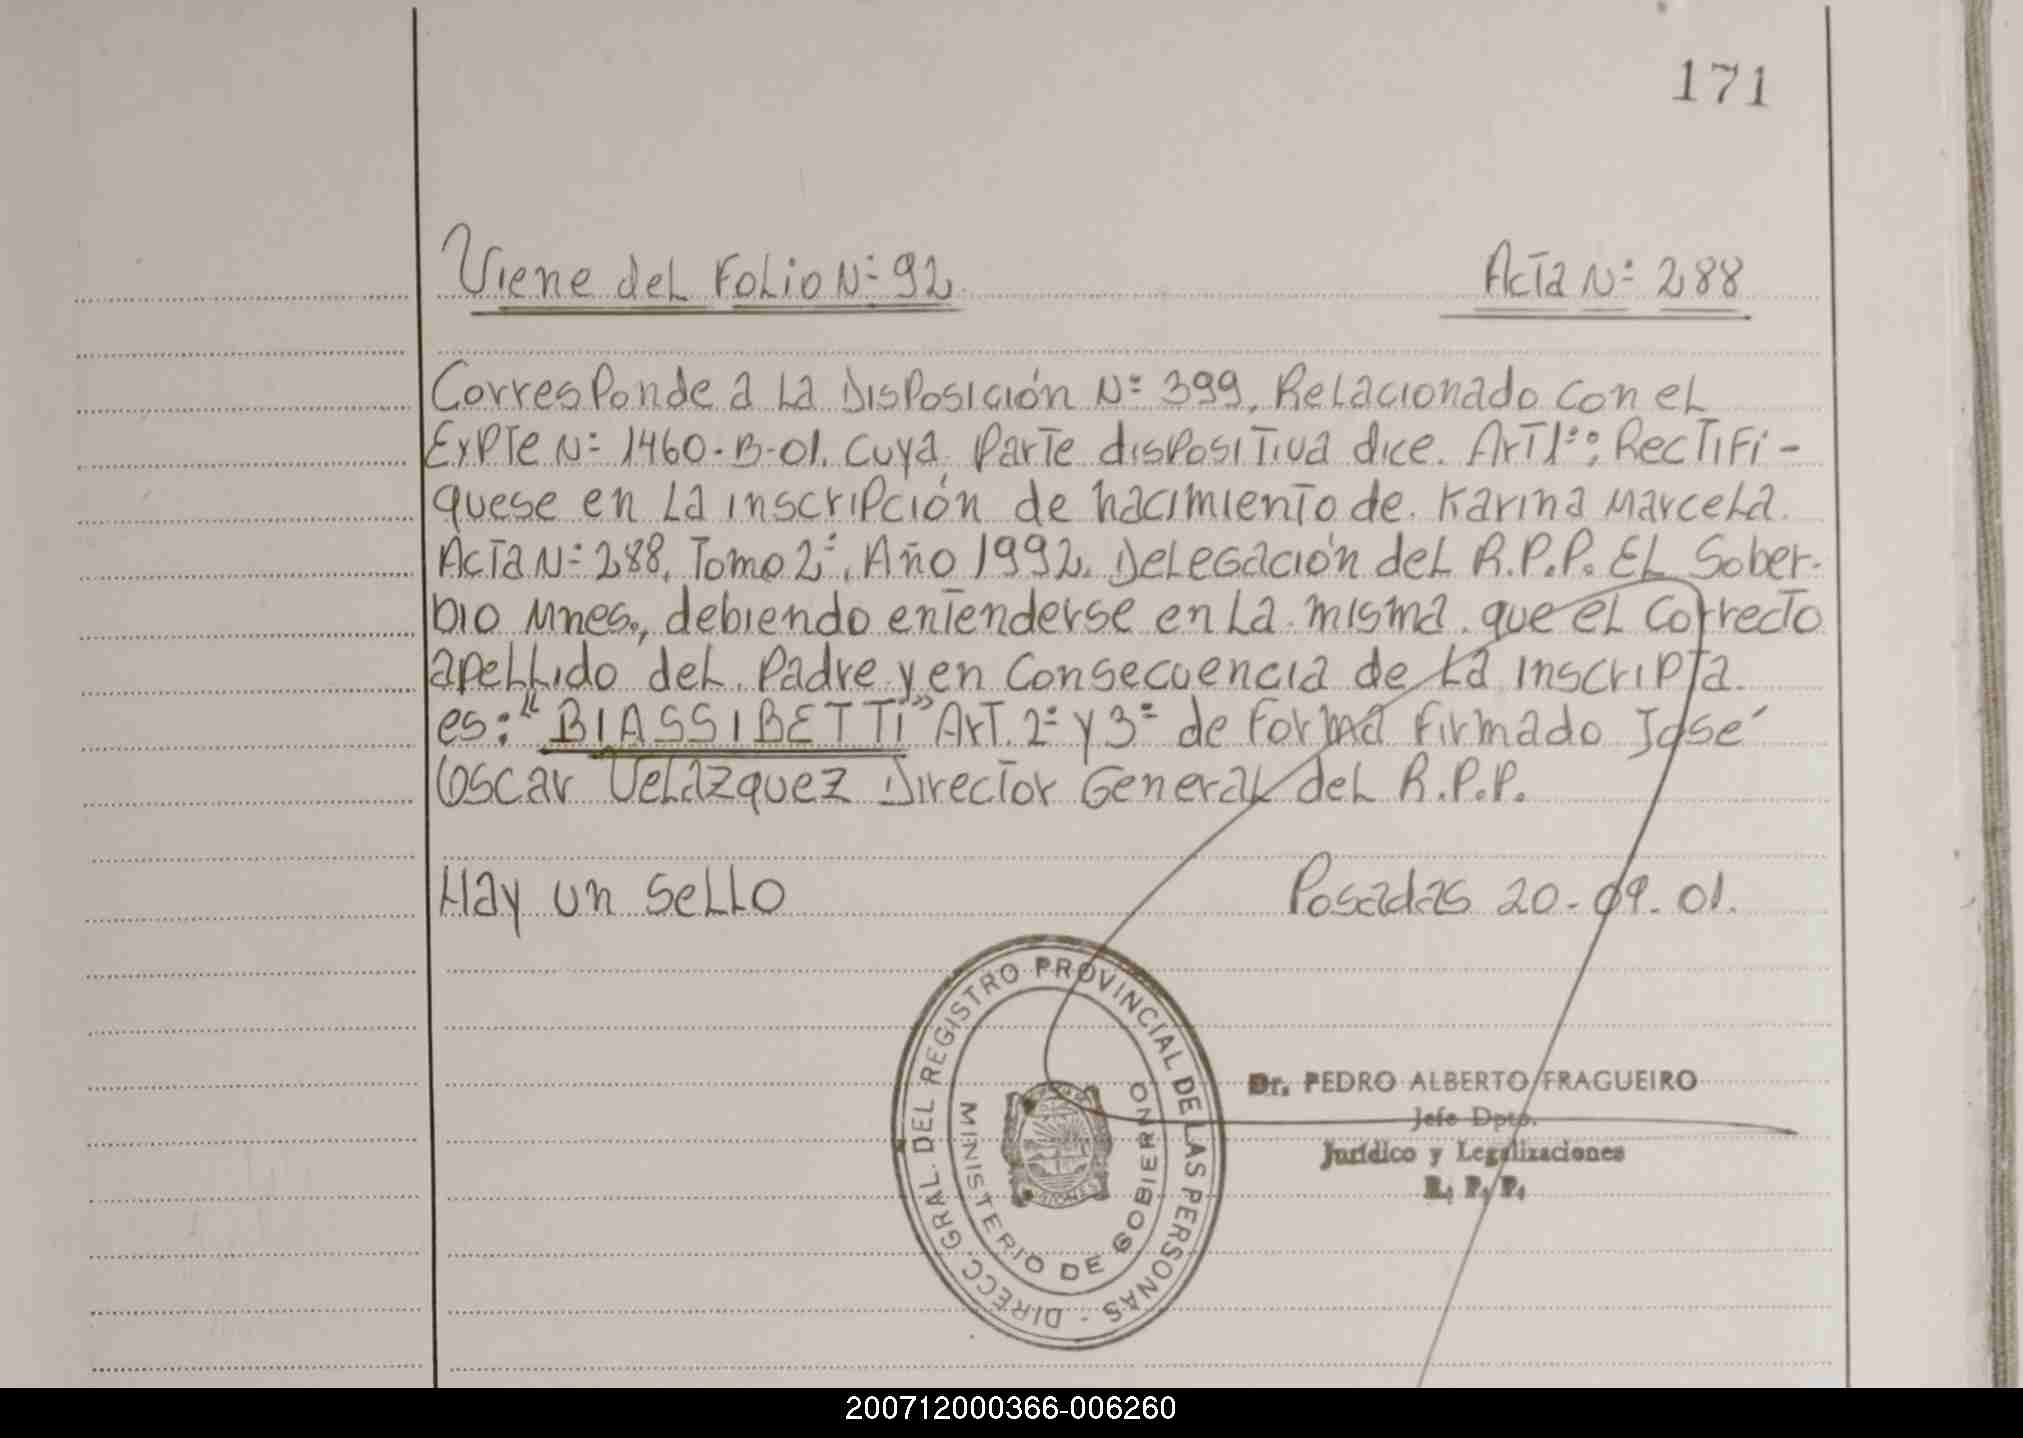 171
Viene del Folio N: 92 Acta N: 288
Corresponde a la Disposición N: 399, Relacionado con el
Expte N: 1460-B-01. cuya parte dispositiva dice. Art 1º: Rectifi-
quese en la inscripción de nacimiento de. Karina Marcela.
Acta N: 288, Tomo 2º, Año 1992. Delegación del R.P.P. El Sober-
bio Mnes., debiendo entenderse en la misma. que el correcto
apellido del. Padre y en consecuencia de la inscripta.
es: "BIASSIBETTI" Art. 2º y 3º de forma firmado José
Oscar Velazquez Director General del R.P.P.
Hay un sello Posadas 20-09-01.
DIRECC. GRAL. DEL REGISTRO PROVINCIAL DE LAS PERSONAS -
MINISTERIO DE GOBIERNO
MISIONES
Dr. PEDRO ALBERTO FRAGUEIRO
Jefe Dpto.
Jurídico y Legalizaciones
R. P. P.
200712000366-006260